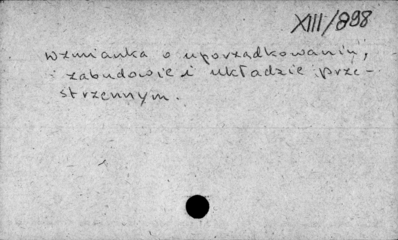 XIII/898
Wzmianka o uporządkowaniu,
zabudowie i układzie prze-
strzennym.